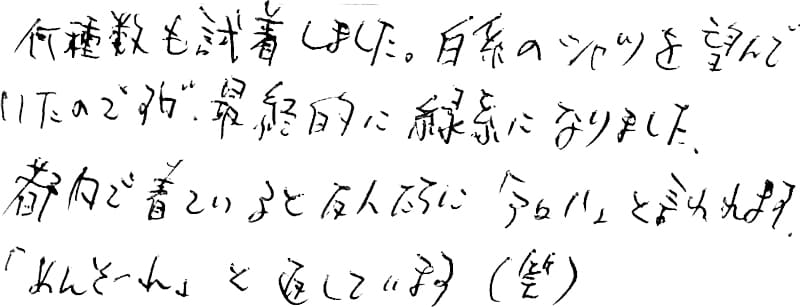 何種類も試着しました。白系のシャツを望んで
いたのですが、最終的に緑系になりました。
都内で着ていると友人たちに「アロハ」と言われます。
「めんそーれ」と返しています(笑)